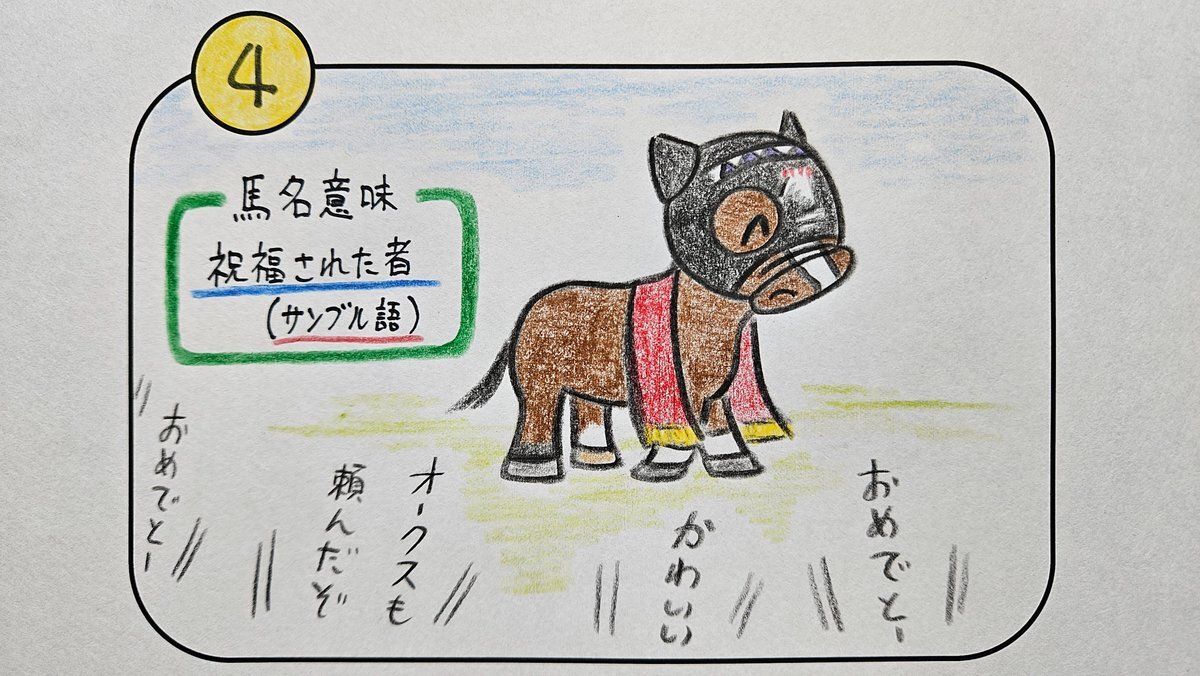 4
馬名意味
祝福された者
(サンブル語)
おめでとー
オークスも
頼んだぞ
かわいい
おめでとー